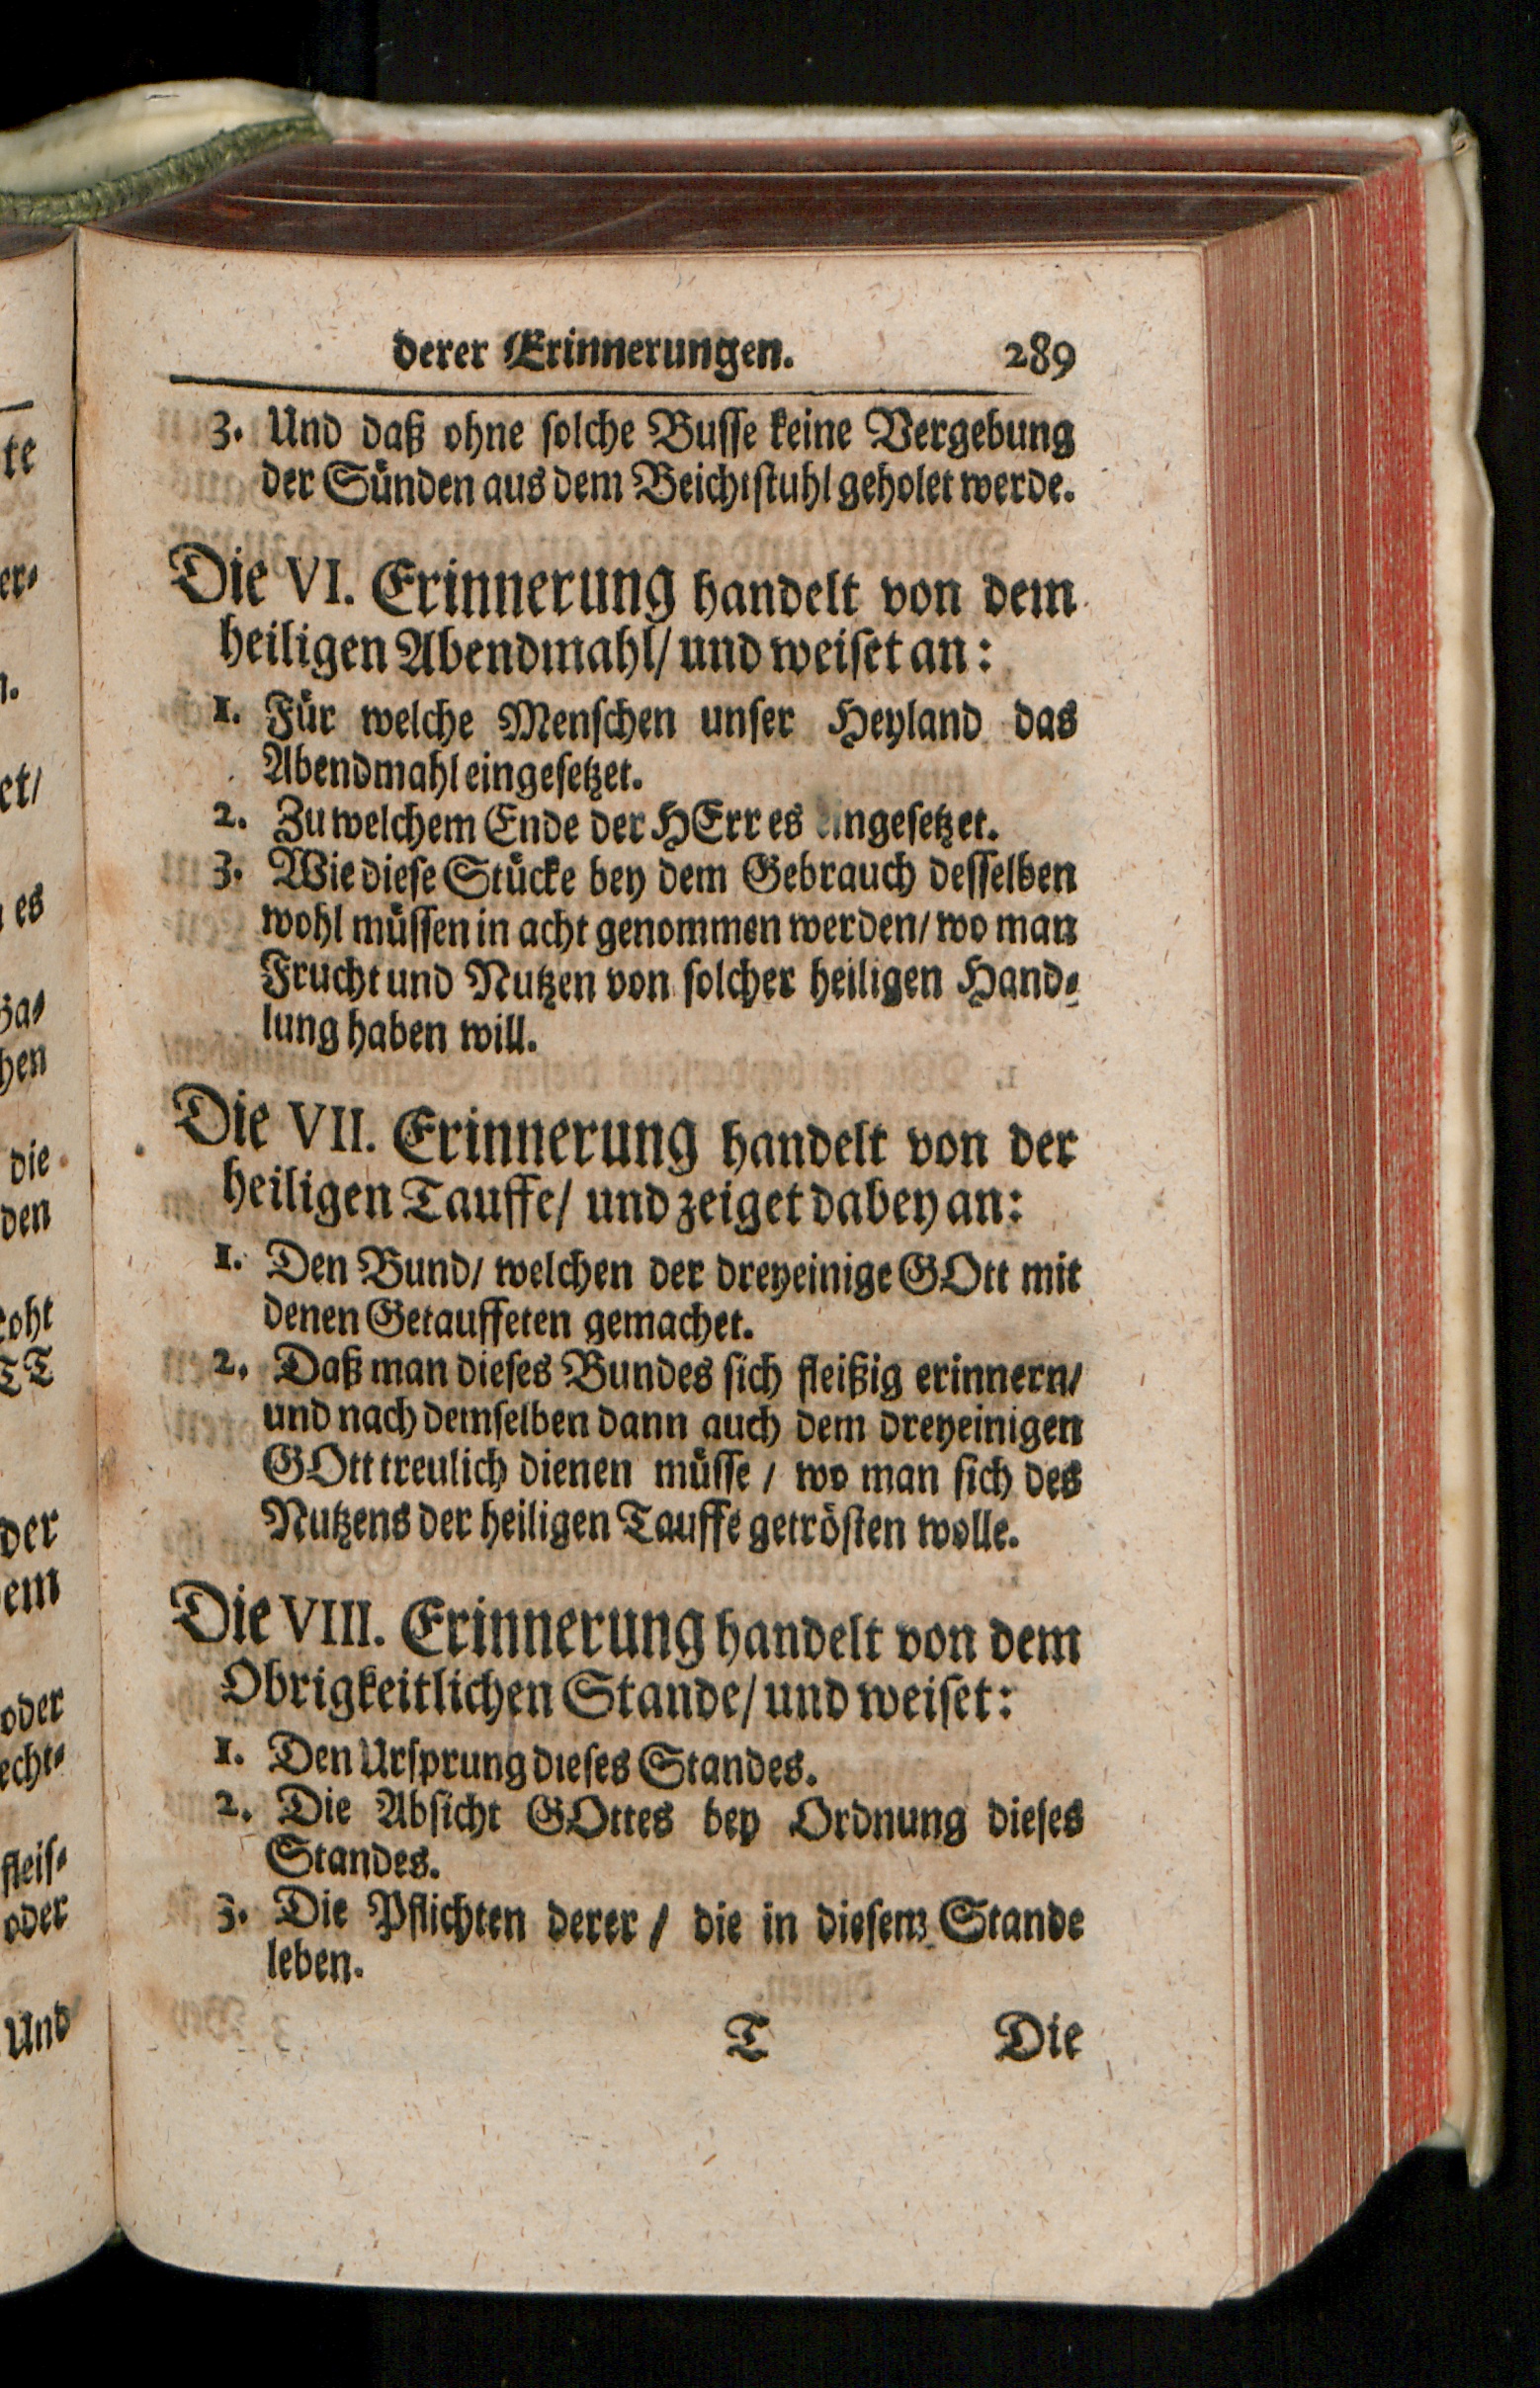 derer Erinnerungen. 289
3. Und daß ohne solche Busse keine Vergebung
der Sünden aus dem Beichtstuhl geholet werde.
Die VI. Erinnerung handelt von dem
heiligen Abendmahl/ und weiset an:
1. Für welche Menschen unser Heyland das
Abendmahl eingesetzet.
2. Zu welchem Ende der HErr es eingesetzet.
3. Wie diese Stücke bey dem Gebrauch desselben
wohl müssen in acht genommen werden/ wo man
Frucht und Nutzen von solcher heiligen Hand-
lung haben will.
Die VII. Erinnerung handelt von der
heiligen Tauffe/ und zeiget dabey an:
1. Den Bund/ welchen der dreyeinige GOtt mit
denen Getauffeten gemachet.
2. Daß man dieses Bundes sich fleißig erinnern/
und nach demselben dann auch dem dreyeinigen
GOtt treulich dienen müsse / wo man sich des
Nutzens der heiligen Tauffe getrösten wolle.
Die VIII. Erinnerung handelt von dem
Obrigkeitlichen Stande/ und weiset:
1. Den Ursprung dieses Standes.
2. Die Absicht GOttes bey Ordnung dieses
Standes.
3. Die Pflichten derer / die in diesem Stande
leben.
T Die